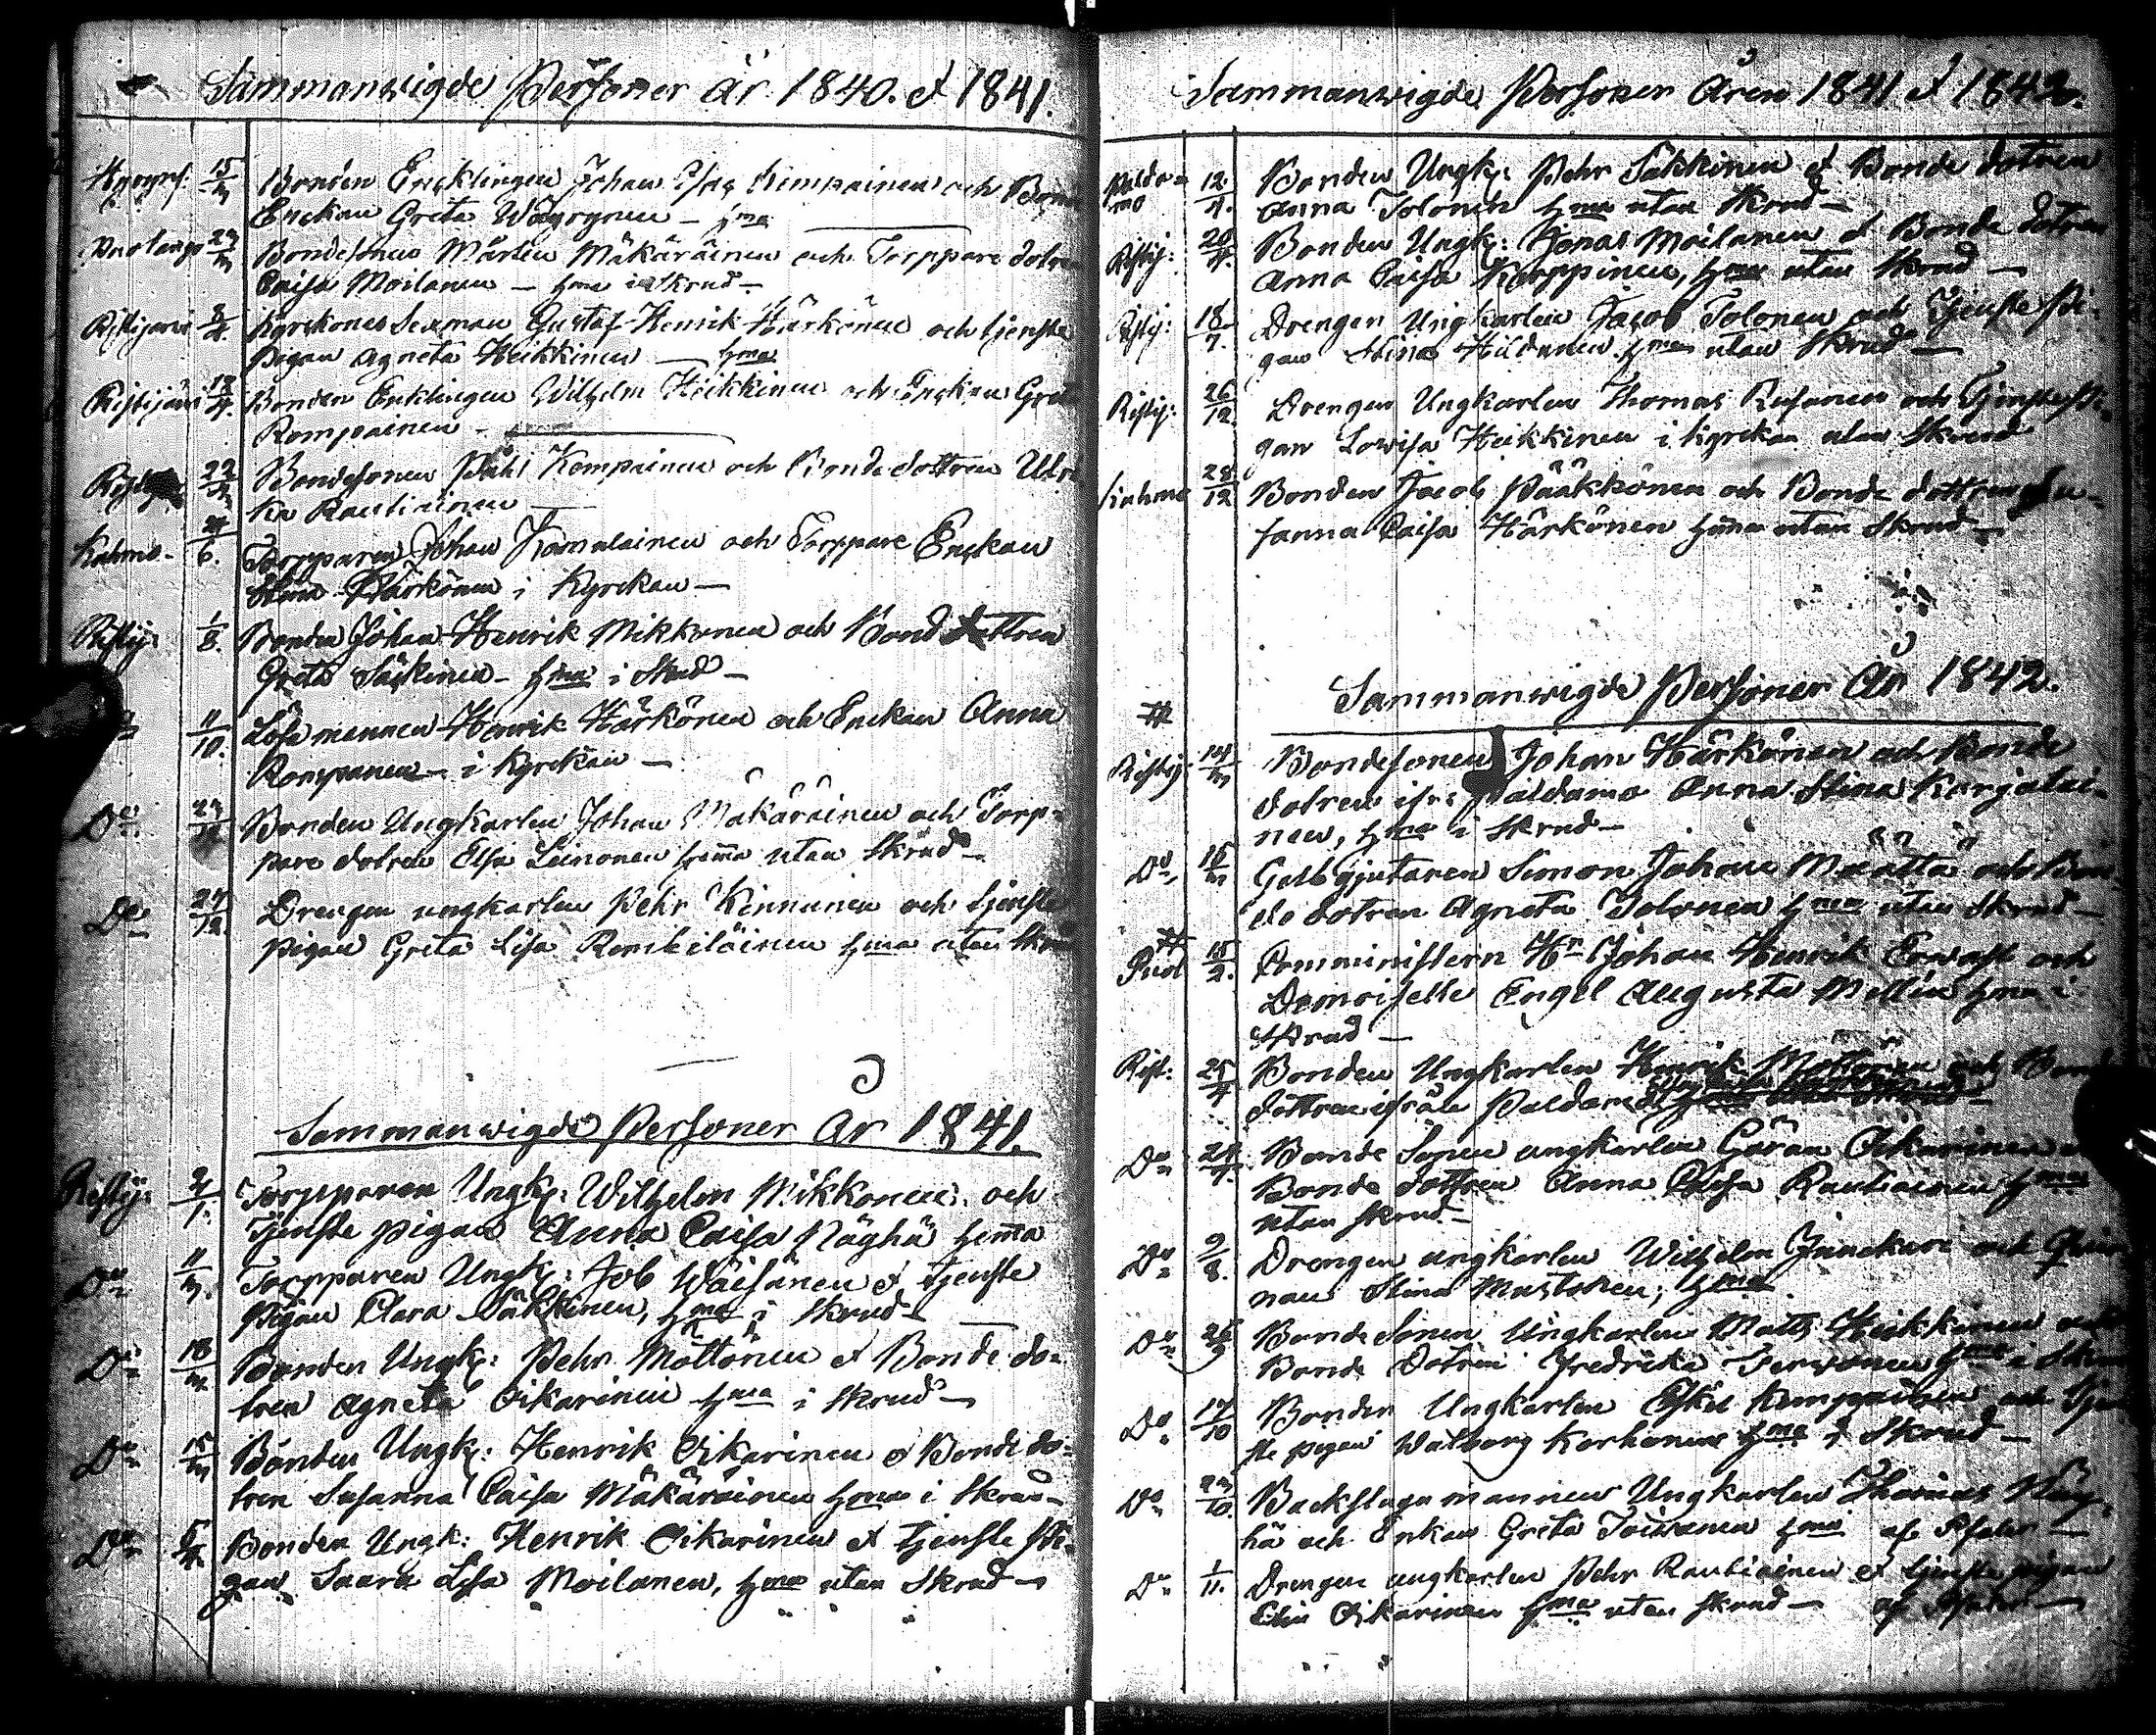 Sammanwigde Personer år 1840. et 1841.
15/m Bonden Encklingen Johan Kempainen och Bonde
Enckan Greta Wäyrynen – hma
Puolango 29/m Bondesonen Mårten Mäkäräinen och Torppare dotren
Caisa Moilanen – hma i Skrud –
Ristijärvi 8/4. Kyrckones Sexman Gustaf Henrik Härkönen och tjenste
pigan Agneta Heikkinen – hma
Ristijärvi 12/4. Bonden Enklingen Wilhelm Heikkinen och Enckan Greta
Rompainen –
22/m Bondesonen Påhl Kempainen och Bonde dottren Ulri
ka Rautiainen –
Kuhmo – 4/6. Torpparen Johan Komulainen och Torppare Enckan
Stina Härkönen i Kyrckan –
Ristij: 1/8. Bonden Johan Henrik Mikkonen och Bond dottren
Greta Säkkinen – hma i Skrud –
11/10. LöSa mannen Henrik Härkönen och Enckan Anna
Rompanen – i Kyrckan –
Do 27/ Bonden Ungkarlen Johan Mäkäräinen och Torp=
pare dotren Elsa Leinonen hemma utan Skrud –
Do 27/12. Drengen ungkarlen Pehr Kinnunen och tjenste
pigan Greta Lisa hma utan Skrud
Sammanwigde Personer år 1841.
Ristij: 2/1. Torpparen Ungk: Wilhelm Mikkonen och
Tjenste pigan Anna Caisa Näyhä hemma
Do 11/ Torpparen Ungk: Job Wäisänen et tjenste
Pigan Clara Säkkinen, hma i Skrud –
Do 18/m Bonden Ungk: Pehr Möttönen et Bonde do=
tren Agneta Oikarinen hma i Skrud –
Do 15/m Bonden Ungk: Henrik Oikarinen et Bonde do=
tren Susanna Caisa Mäkäräinen hma i Skrud –
Do Bonden Ungk: Henrik Oikarinen et tjenste Pi=
gan Saara Lisa Moilanen, hma utan Skrud –
Sammanwigde Personer Åren 1841 et 1842.
Paldamo 12/4. Bonden Ungk: Pehr Säkkinen et Bonde dotren
Anna Tolonen hma utan Skrud –
Ristij: Bonden Ungk: Jonas Moilanen et Bonde dotren
Anna Caisa Korppinen, hma utan Skrud –
Ristij: 18/7. Drengen Ungkarlen Jacob Tolonen och Tjenste Pi=
gan Stina Hildunen hma utan Skrud –
Ristij: 26/12. Drengen Ungkarlen Thomas och Tjenste Pi=
gan Lowisa Heikkinen i kyrckan utan Skrud
Kuhmo 28/12 Bonden Jacob Pääkkönen och Bonde dottren Su=
sanna Caisa Härkönen hema utan Skrud –
Sammanwigde Personer År 1842.
Ristij: 14/m Bondesonen Johan Härkönen och Bonde
dotren ifr: Paldamo Anna Stina Karjalai=
nen, hma i Skrud –
Do 16/m Gelbgjutaren Simon Johan Määttä och Bon
de dotren Agneta Tolonen hma utan Skrud –
Puol 15/2. Comministern Hr Johan Henrik Erwast och
Demoiselle Engel Augusta Mellin hma i
Skrud –
Rist: 25/4 Bonden Ungkarlen Henrik Möttönen och Bonde
dottren ifrån Paldamo
Do Bonde Sonen ungkarlen Göran Oikarinen
Bonde dottren Anna Caisa Rautiainen hma
utan Skrud –
Do 9/8. Drengen ungkarlen Wilhelm och Quin
nan Stina Mustonen; hma
Do Bonde Sonen Ungkarlen Matts Heikkinen och
Bonde Dotren Fredrika hma i Skrud
Do 17/10 Bonden Ungkarlen Eskel Kemppainen och Tjen
ste pigan Walborg Karhonen hma i Skrud –
Do 23/10. Backstuga mannen Ungkarlen Thomas Näy=
hä och Enkan Greta Toiwanen hma af
Do 1/11. Drengen ungkarlen Pehr Rautiainen et tjenste pigan
Elin Oikarinen hma utan Skrud – af